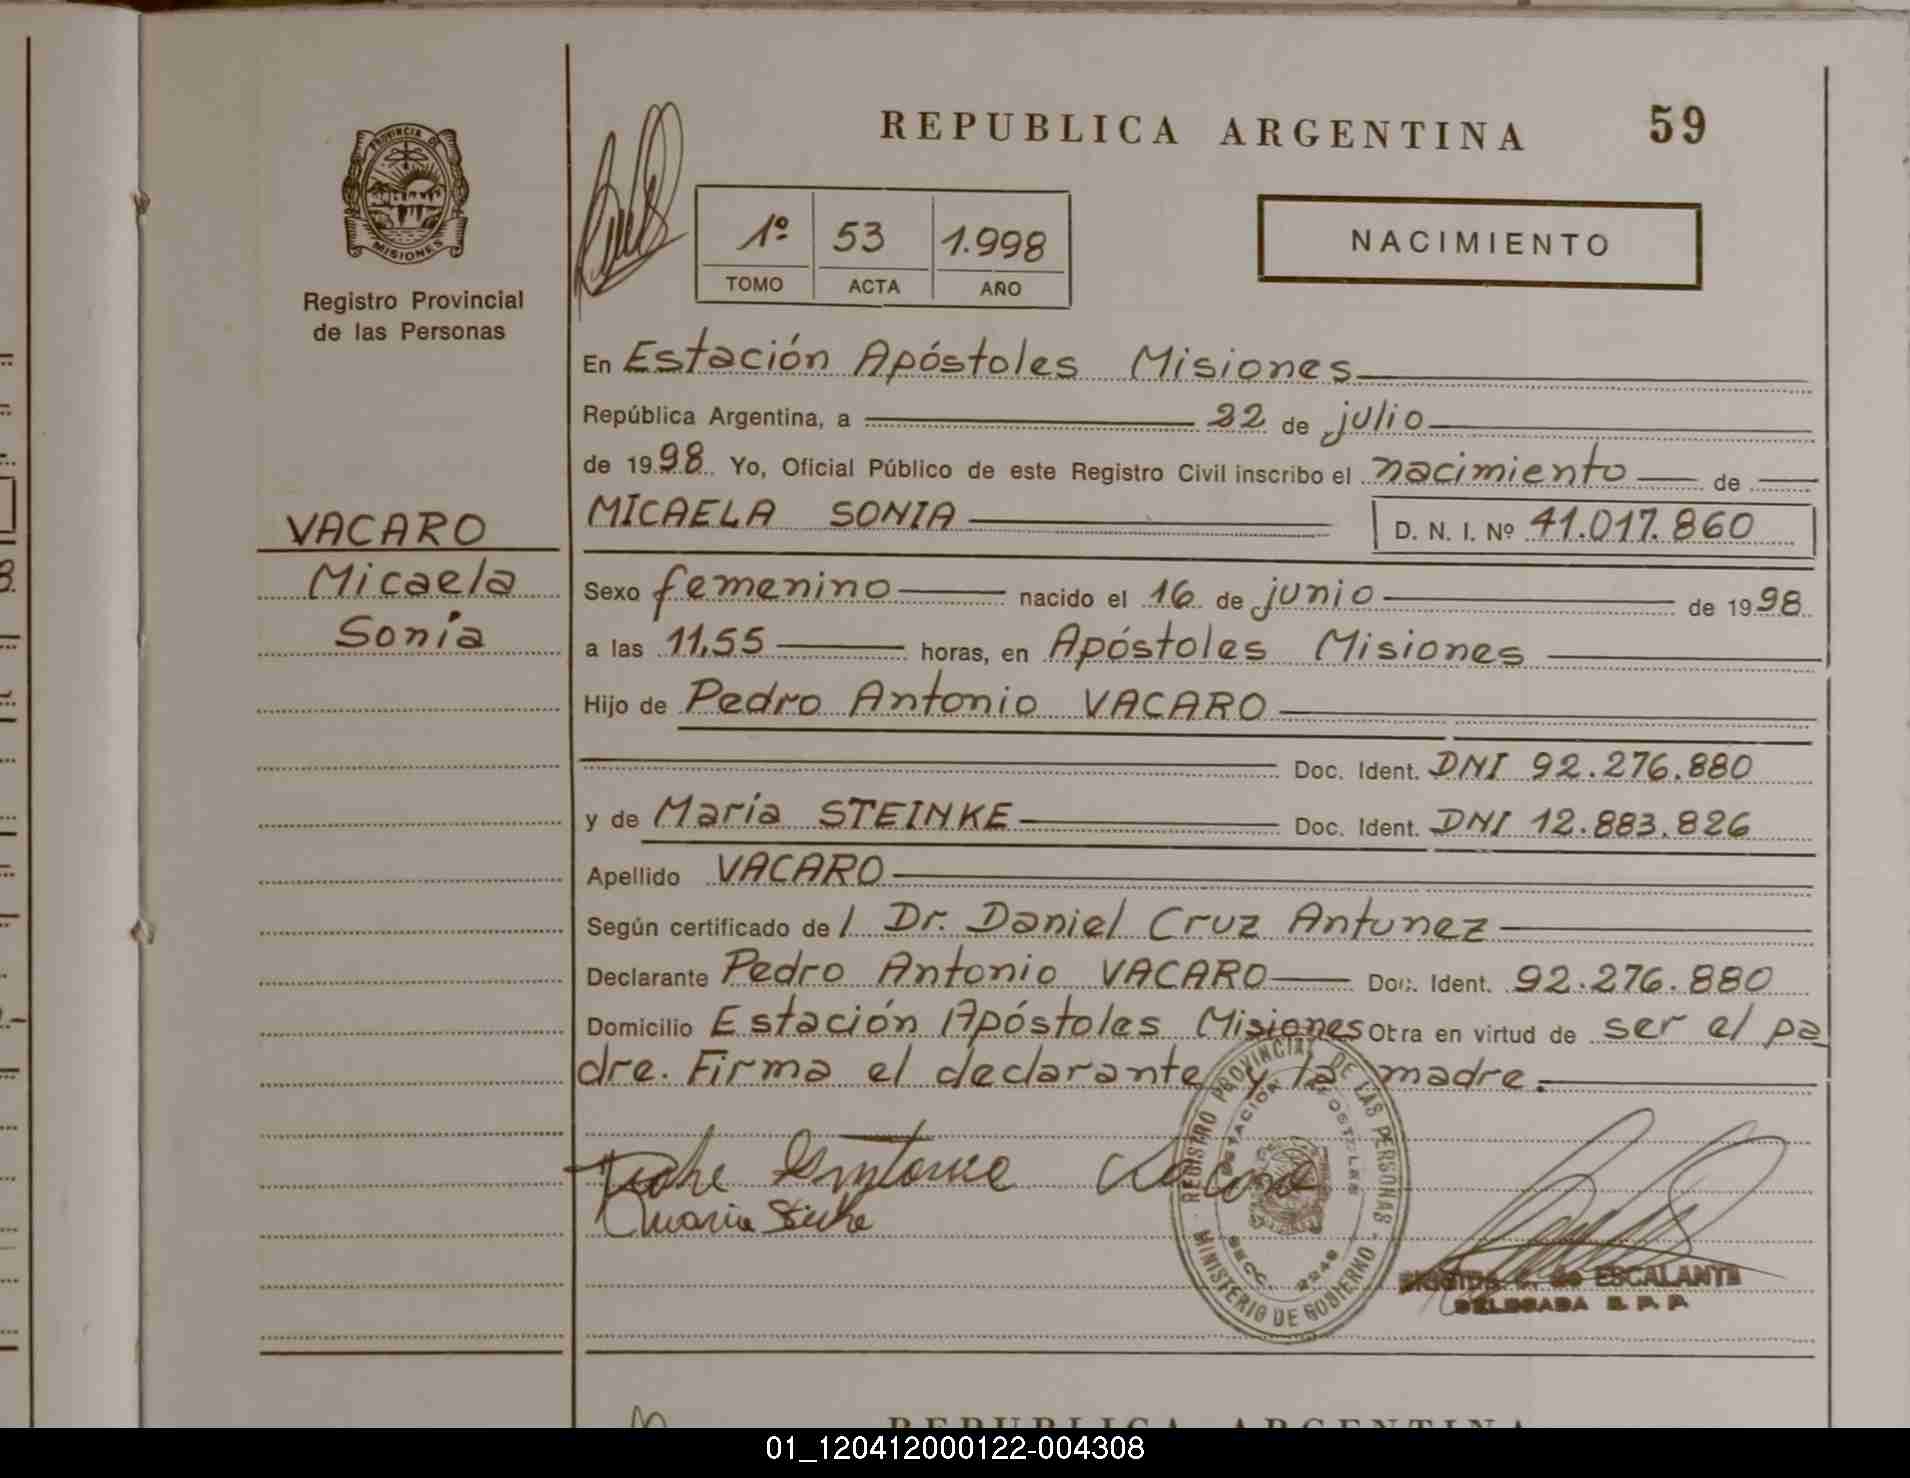 REPUBLICA ARGENTINA 59
PROVINCIA DE
MISIONES
Registro Provincial
de las Personas
1º 53 1.998
TOMO ACTA AÑO
NACIMIENTO
En Estación Apóstoles Misiones
República Argentina, a 22 de julio
de 1998 Yo, Oficial Público de este Registro Civil inscribo el nacimiento de
VACARO
Micaela
Sonia
MICAELA SONIA D. N. I. Nº 41.017.860
Sexo femenino nacido el 16 de junio de 1998
a las 11,55 horas, en Apóstoles Misiones
Hijo de Pedro Antonio VACARO
Doc. Ident. DNI 92.276.880
y de María STEINKE Doc. Ident. DNI 12.883.826
Apellido VACARO
Según certificado de l Dr. Daniel Cruz Antunez
Declarante Pedro Antonio VACARO Doc. Ident. 92.276.880
Domicilio Estación Apóstoles Misiones Otra en virtud de ser el pa
dre. Firma el declarante y la madre.
REGISTRO PROVINCIAL DE LAS PERSONAS -
MINISTERIO DE GOBIERNO
ESTACION APOSTOLES
SECC. 2240
Maria
de ESCALANTE
DELEGADA R. P. P.
REPUBLICA ARGENTINA
01_120412000122-004308